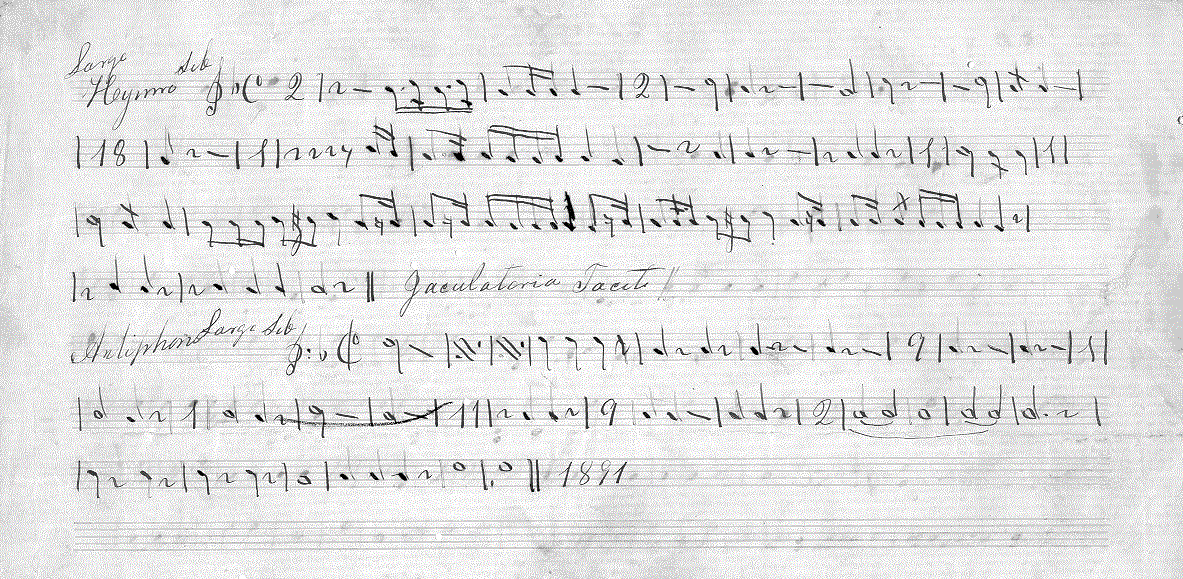 Largo
Hymno Sib 2 2
18 1 1 1
Jaculatoria Tacet
Antiphona Largo Sib 9 1
1 11 9 2
1891